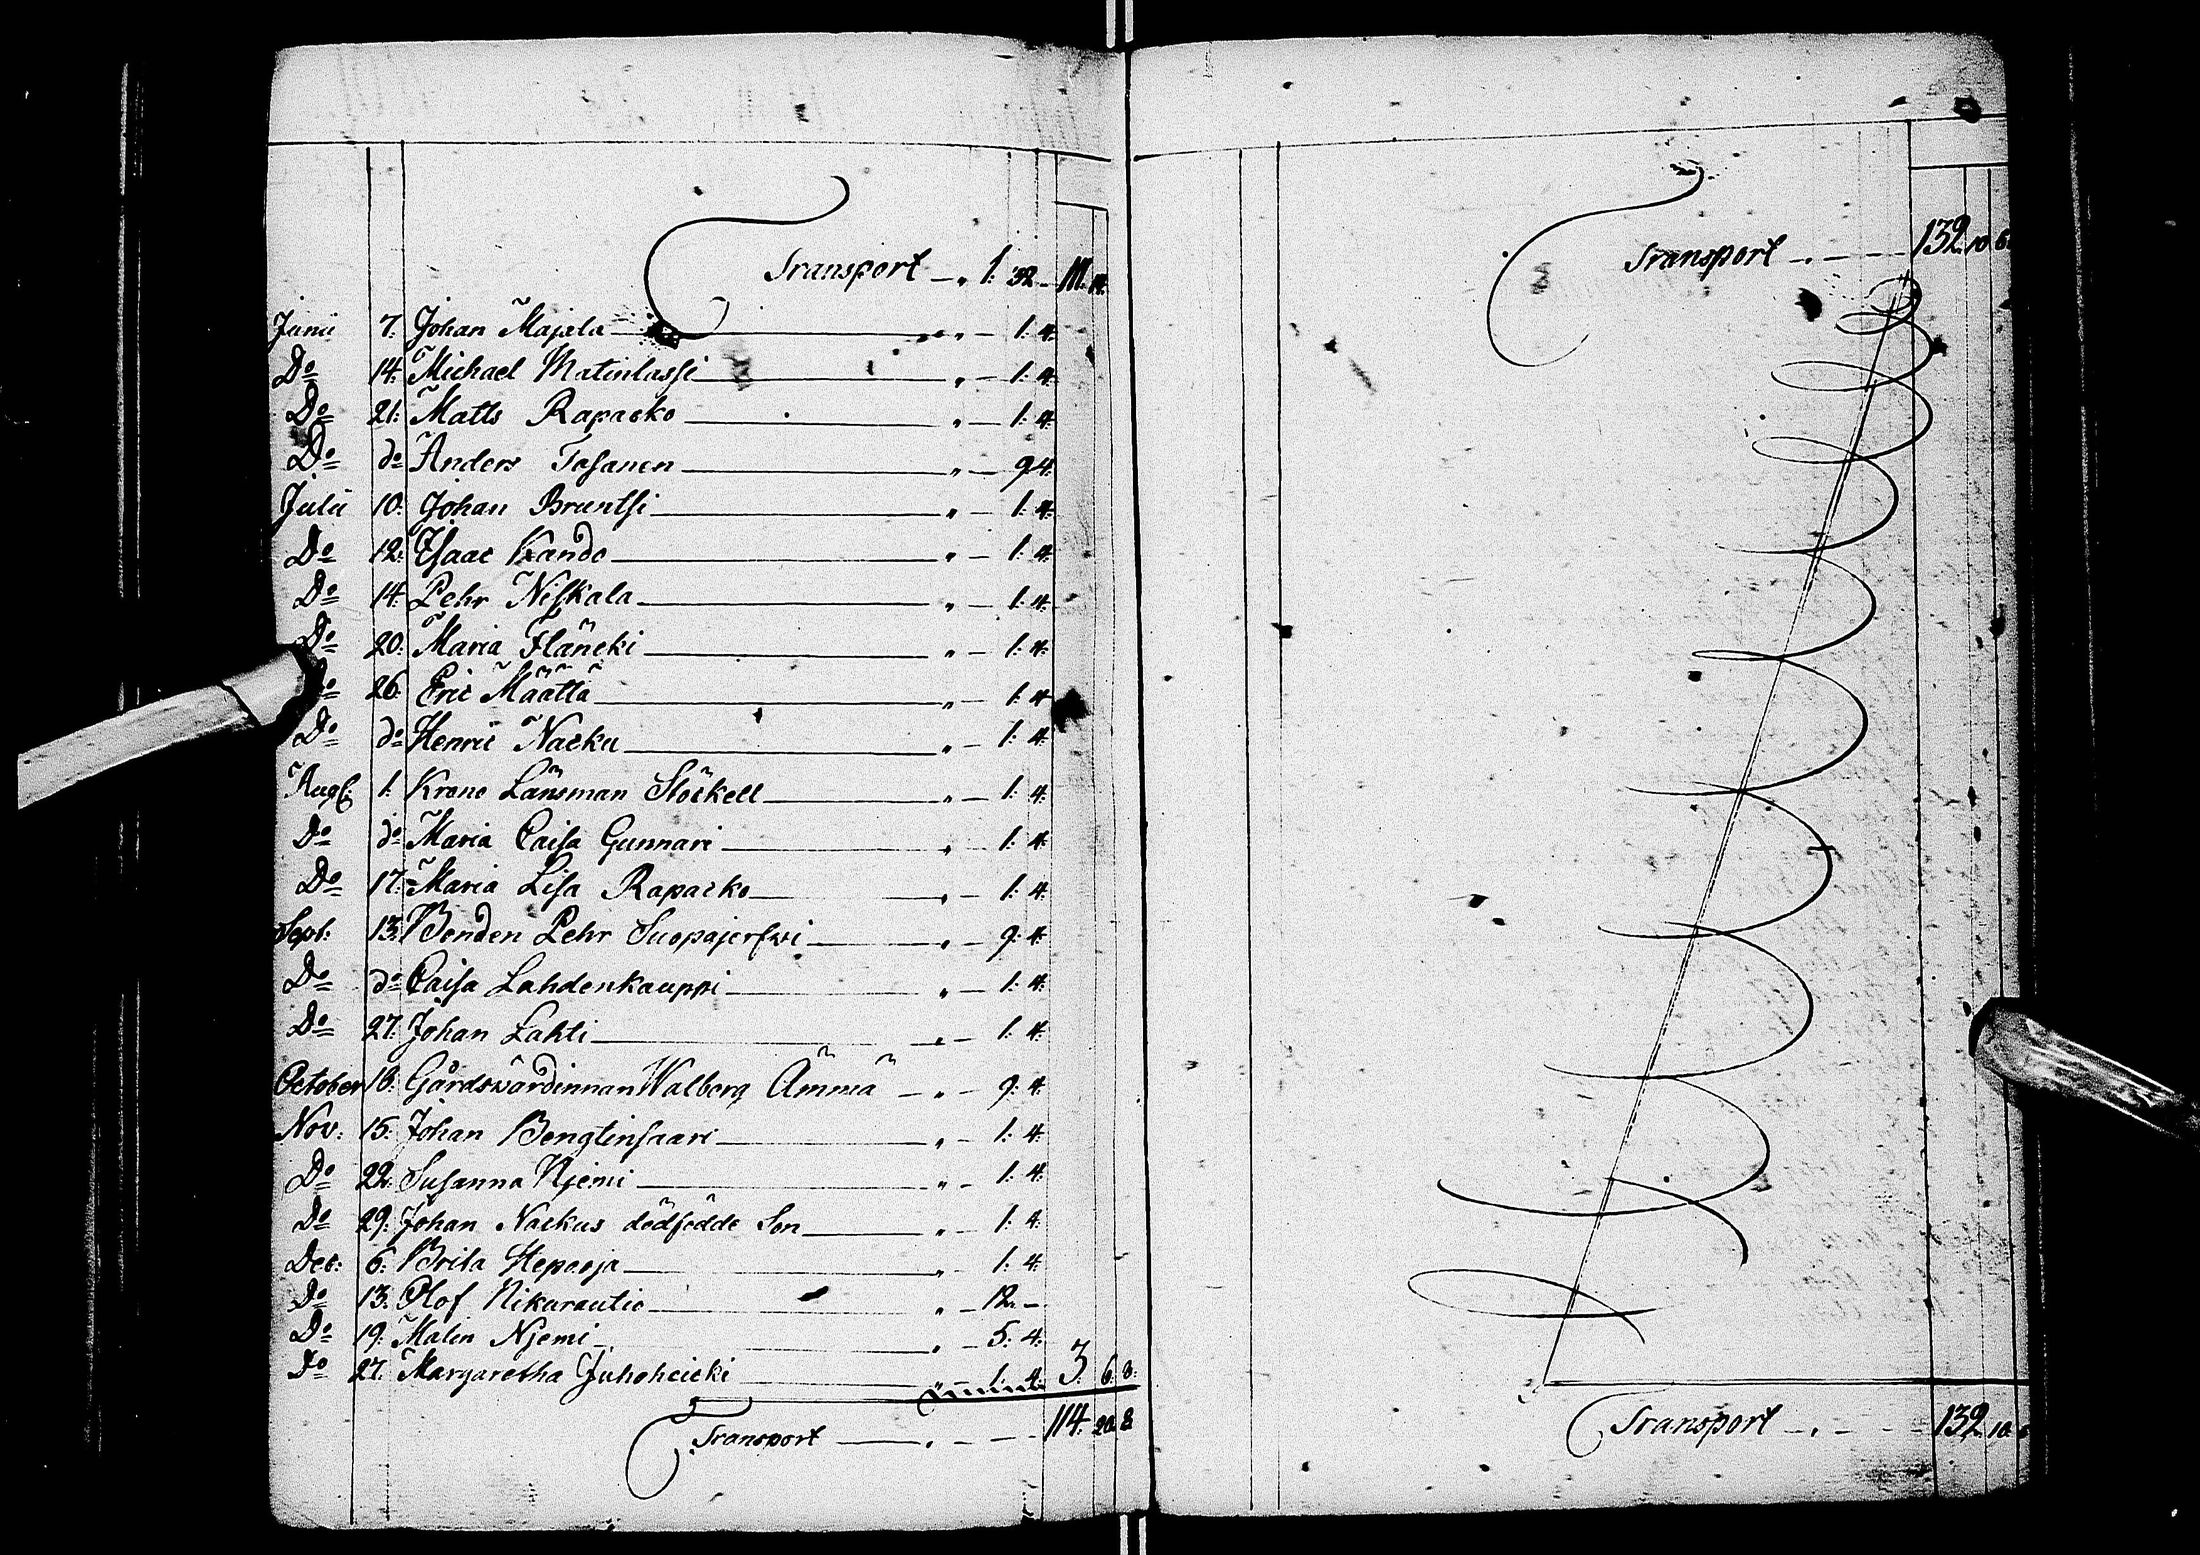 Transport — „ 1: 32 — 111. 14.
Junii 7. Johan Majala — „ — 1: 4.
Do 14. Michael Matinlassi — „ — 1: 4.
Do 21. Matts Rapacko — „ — 1: 4.
Do do Anders Tosanen — „ — 9: 4.
Julii 10. Johan Bruntsi — „ — 1: 4.
Do 12. Isaac Kando — „ — 1: 4.
Do 14. Pehr Niskala — „ — 1: 4.
Do 20. Maria Fläncki — „ — 1: 4.
Do 26. Eric Määttä — „ — 1: 4.
Do do Henric Nacku — „ — 1: 4.
Aug: 1. Krono Länsman Stöckell — „ — 1: 4.
Do do Maria Caisa Gunnari — „ — 1: 4.
Do 17. Maria Lisa Rapacko — „ — 1: 4.
Sept: 13. Bonden Pehr Suopajerfwi — „ — 9: 4.
Do do Caisa Lahdenkauppi — „ — 1: 4.
Do 27. Johan Lahti — „ — 1: 4.
October 18. Gårdswärdinnan Walborg Ämmä — „ — 9: 4.
Nov: 15. Johan Bengtinsaari — „ — 1: 4.
Do 22. Susanna Njemi — „ — 1: 4.
Do 29. Johan Nackus dödfödde Son — „ — 1: 4.
Dec: 6. Brita Heporja — „ — 1: 4.
Do 13. Olof Nikurautio — „ — 12. —
Do 19. Malin Njemi — „ — 5: 4.
Do 27. Margaretha Juhoheicki — „ 1: 4. 3. 6. 8.
Transport — „ — 114. 20. 8
Transport — „ — 132. 10. 6
Transport — „ — 132. 10.